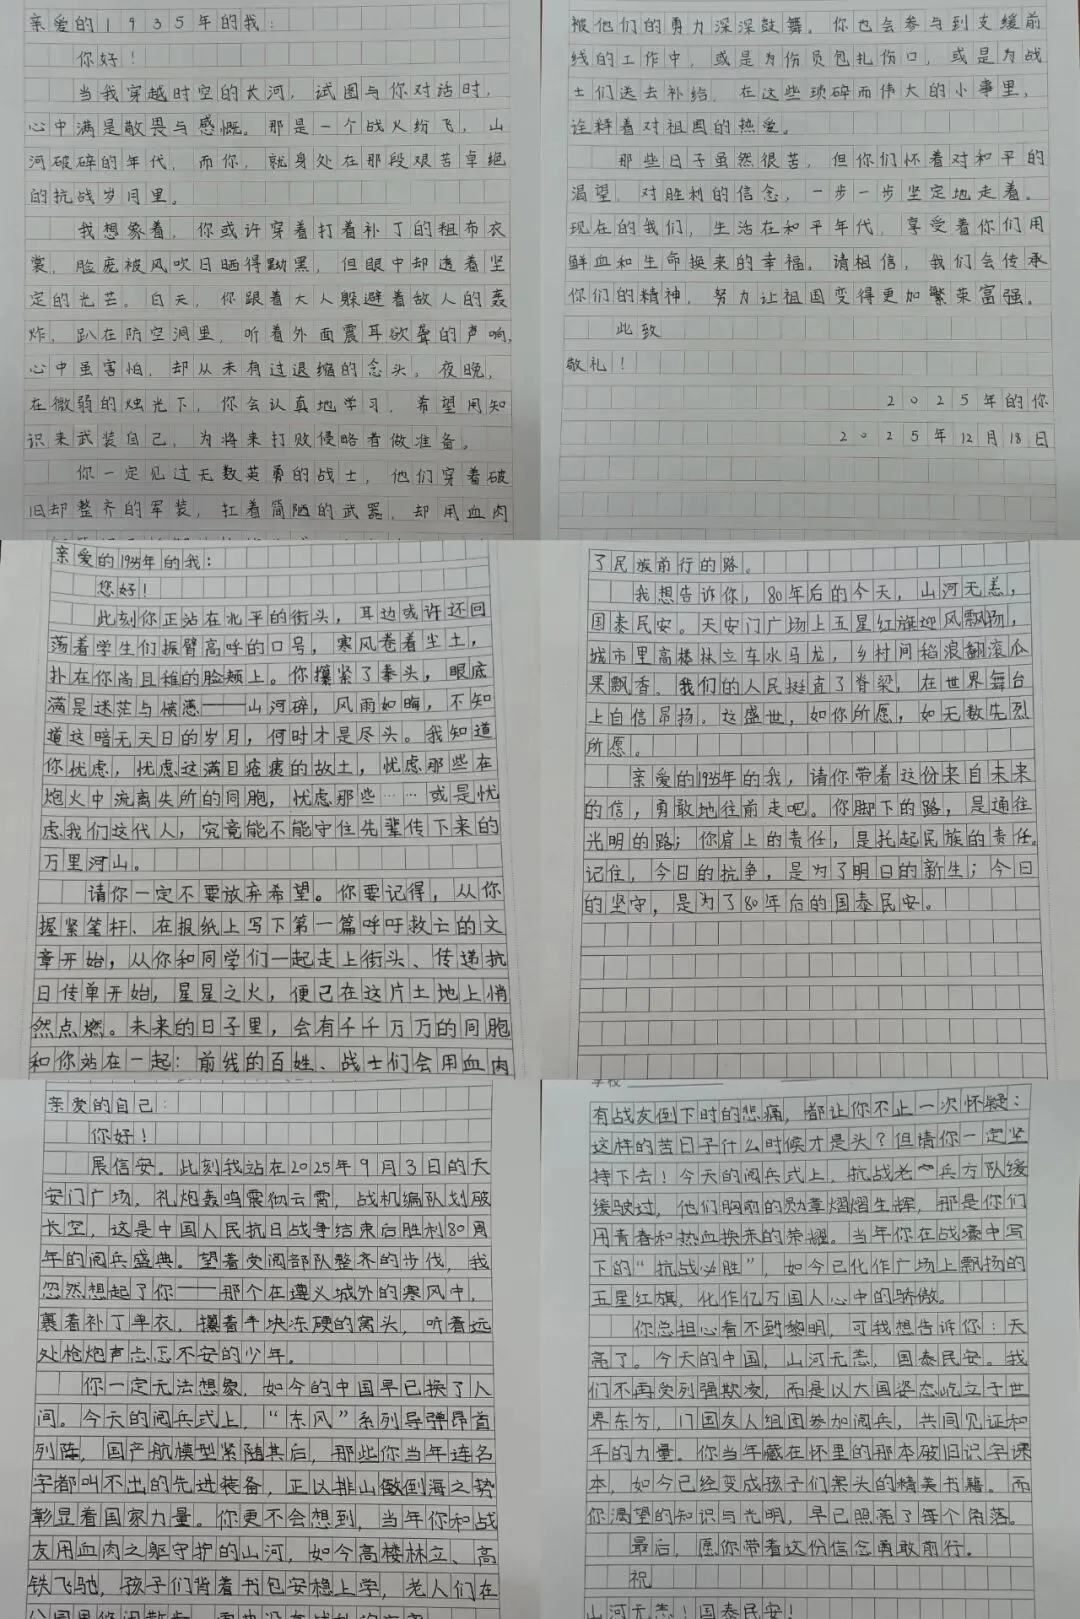 亲爱的1935年的我:
你好!
当我穿越时空的长河,试图与你对话时,
心中满是敬畏与感慨。那是一个战火纷飞,山
河破碎的年代,而你,就身处在那段艰苦卓绝
的抗战岁月里。
我想象着,你或许穿着打着补丁的粗布衣
裳,脸庞被风吹日晒得黝黑,但眼中却透着坚
定的光芒。白天,你跟着大人躲避着敌人的轰
炸,趴在防空洞里,听着外面震耳欲聋的声响,
心中虽害怕,却从未有过退缩的念头。夜晚,
在微弱的烛光下,你会认真地学习,希望用知
识来武装自己,为将来打败侵略者做准备。
你一定见过无数英勇的战士,他们穿着破
旧却整齐的军装,扛着简陋的武器,却用血肉
被他们的勇力深深鼓舞。你也会参与到支缓前
线的工作中,或是为伤员包扎伤口,或是为战
士们送去补给,在这些琐碎而伟大的小事里,
诠释着对祖国的热爱。
那些日子虽然很苦,但你们怀着对和平的
渴望,对胜利的信念,一步一步坚定地走着。
现在的我们,生活在和平年代,享受着你们用
鲜血和生命换来的幸福,请相信,我们会传承
你们的精神,努力让祖国变得更加繁荣富强。
此致
敬礼!
2025年的你
2025年12月18日
亲爱的1935年的我:
您好!
此刻你正站在北平的街头,耳边或许还回
荡着学生们振臂高呼的口号,寒风卷着尘土,
扑在你尚且稚的脸颊上。你攥紧了拳头,眼底
满是迷茫与愤懑——山河碎,风雨如晦,不知
道这暗无天日的岁月,何时才是尽头。我知道
你忧虑,忧虑这满目疮痍的故土,忧虑那些在
炮火中流离失所的同胞,忧虑那些……或是忧
虑我们这代人,究竟能不能守住先辈传下来的
万里河山。
请你一定不要放弃希望。你要记得,从你
握紧笔杆、在报纸上写下第一篇呼吁救亡的文
章开始,从你和同学们一起走上街头、传递抗
日传单开始,星星之火,便已在这片土地上悄
然点燃。未来的日子里,会有千千万万的同胞
和你站在一起:前线的百姓、战士们会用血肉
了民族前行的路。
我想告诉你,80年后的今天,山河无恙,
国泰民安。天安门广场上五星红旗迎风飘扬,
城市里高楼林立车水马龙,乡村间稻浪翻滚瓜
果飘香。我们的人民挺直了脊梁,在世界舞台
上自信昂扬。这盛世,如你所愿,如无数先烈
所愿。
亲爱的1935年的我,请你带着这份来自未来
的信,勇敢地往前走吧。你脚下的路,是通往
光明的路;你肩上的责任,是托起民族的责任。
记住,今日的抗争,是为了明日的新生;今日
的坚守,是为了80年后的国泰民安。
亲爱的自己:
你好!
展信安。此刻我站在2025年9月3日的天
安门广场,礼炮轰鸣震彻云霄,战机编队划破
长空,这是中国人民抗日战争结束后胜利80周
年的阅兵盛典。望着受阅部队整齐的步伐,我
忽然想起了你——那个在遵义城外的寒风中,
裹着补丁单衣,攥着半块冻硬的窝头,听着远
处枪炮声忐忑不安的少年。
你一定无法想象,如今的中国早已换了人
间。今天的阅兵式上,“东风”系列导弹昂首
列阵,国产航模型紧随其后,那些你当年连名
字都叫不出的先进装备,正以排山倒海之势
彰显着国家力量。你更不会想到,当年你和战
友用血肉之躯守护的山河,如今高楼林立、高
铁飞驰,孩子们背着书包安稳上学,老人们在
学校
有战友倒下时的悲痛,都让你不止一次怀疑:
这样的苦日子什么时候才是头?但请你一定坚
持下去!今天的阅兵式上,抗战老兵方队缓
缓驶过,他们胸前的勋章熠熠生辉,那是你们
用青春和热血换来的荣耀。当年你在战壕中写
下的“抗战必胜”,如今已化作广场上飘扬的
五星红旗,化作亿万国人心中的骄傲。
你总担心看不到黎明,可我想告诉你:天
亮了。今天的中国,山河无恙,国泰民安。我
们不再受列强欺凌,而是以大国姿态屹立于世
界东方,17国友人组团参加阅兵,共同见证和
平的力量。你当年藏在怀里的那本破旧识字课
本,如今已经变成孩子们案头的精美书籍。而
你渴望的知识与光明,早已照亮了每个角落。
最后,愿你带着这份信念勇敢前行。
祝
山河无恙!国泰民安!